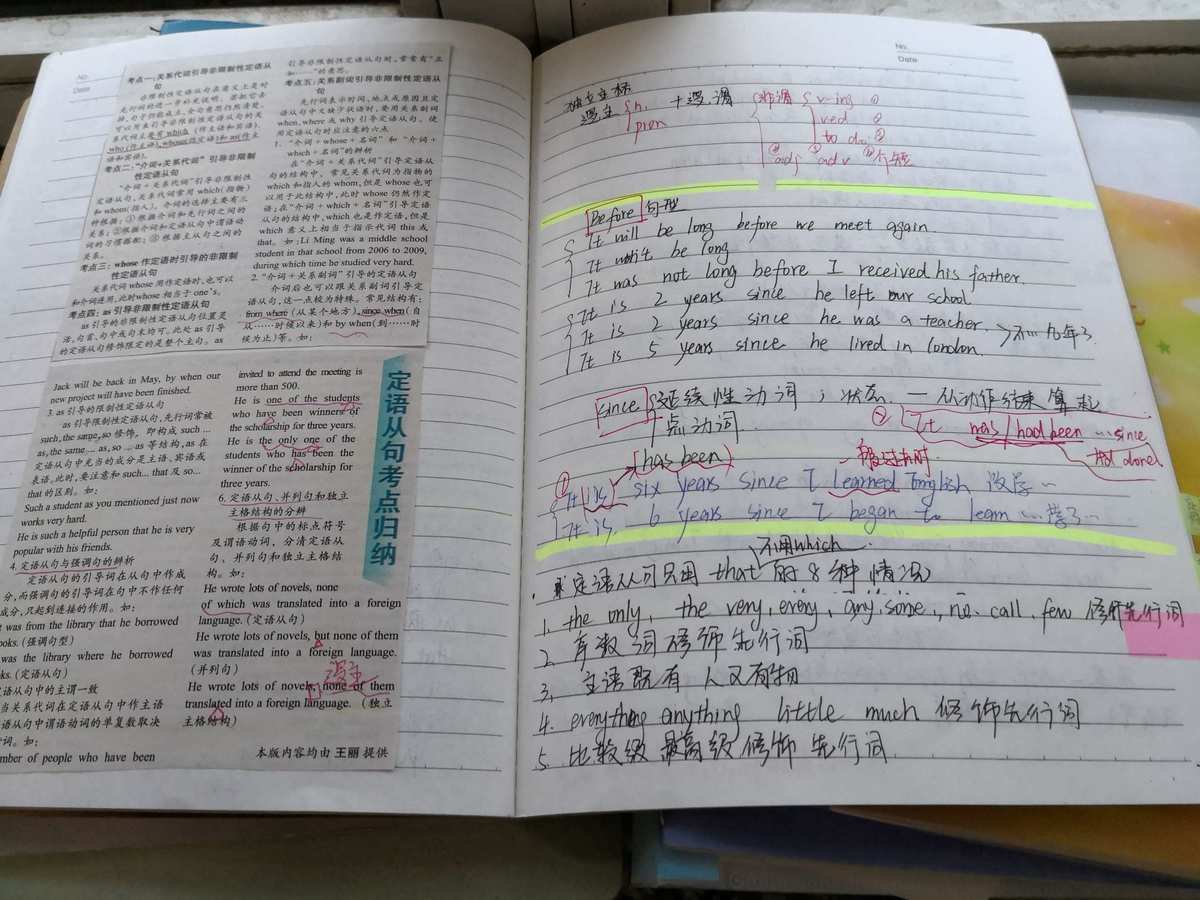 No.
Date
考点一：关系代词引导非限制性定语从
句
非限制性定语从句在意义上是对
先行词的进一步补充说明，若把它去
掉，句子仍能成立，主句意思仍然清楚。
可以用来引导非限制性定语从句的关
系代词主要有which（作主语和宾语）、
who（作主语）、whose（作定语）和as（作主
语和宾语）。
考点二：“介词+关系代词”引导非限制
性定语从句
“介词+关系代词”引导非限制性
定语从句，关系代词常用which（指物）
和whom（指人）。介词的选择主要有三
种根据：①根据介词和先行词之间的
关系；②根据介词和定语从句中谓语动
词的习惯搭配；③根据主从句之间的
关系。
考点三：whose作定语时引导的非限制
性定语从句
关系代词whose用作定语时，也可以
和介词连用，此时whose相当于one's。
考点四：as引导非限制性定语从句
as引导的非限制性定语从句位置灵
活，句首、句中或句末均可。此处as引导
的定语从句修饰限定的是整个主句。as
引导非限制性定语从句时，常常有“正
如……”的意思。
考点五：关系副词引导非限制性定语从
句
先行词表示时间、地点或原因且定
语从句中又缺少状语时，要用关系副词
when, where或why引导定语从句。使
用定语从句时应注意的六点
1. “介词+whose+名词”和“介词+
which+名词”的辨析
在“介词+关系代词”引导定语从
句的结构中，常见关系代词为指物的
which和指人的whom，但是whose也可
以用于此结构中，此时whose仍然作定
语；在“介词+which+名词”引导定语
从句的结构中，which也是作定语，但是
which意义上相当于指示代词this或
that。如：Li Ming was a middle school
student in that school from 2006 to 2009,
during which time he studied very hard.
2. “介词+关系副词”引导的定语从句
介词后也可以跟关系副词引导定
语从句，这一点较为特殊。常见结构有：
from where（从某个地方），since when（自
从……时候以来）和by when（到……时
候为止）等。如：
Jack will be back in May, by when our
new project will have been finished.
3. as引导的限制性定语从句
as引导限制性定语从句，先行词常被
such, the same, so修饰，即构成such …
as, the same … as, so … as等结构，as在
定语从句中充当的成分是主语、宾语或
表语。此时，要注意和such… that及so…
that的区别。如：
Such a student as you mentioned just now
works very hard.
He is such a helpful person that he is very
popular with his friends.
4. 定语从句与强调句的辨析
定语从句的引导词在从句中作成
分，而强调句的引导词在句中不作任何
成分，只起到连接的作用。如：
was from the library that he borrowed
ooks.（强调句型）
was the library where he borrowed
ks.（定语从句）
语从句中的主谓一致
当关系代词在定语从句中作主语
语从句中谓语动词的单复数取决
词。如：
mber of people who have been
invited to attend the meeting is
more than 500.
He is one of the students
who have been winners of
the scholarship for three years.
He is the only one of the
students who has been the
winner of the scholarship for
three years.
6. 定语从句、并列句和独立
主格结构的分辨
根据句中的标点符号
及谓语动词，分清定语从
句、并列句和独立主格结
构。如：
He wrote lots of novels, none
of which was translated into a foreign
language.（定语从句）
He wrote lots of novels, but none of them
was translated into a foreign language.
（并列句）
He wrote lots of novels, none of them
translated into a foreign language.（独立
主格结构）
本版内容均由 王丽 提供
定语从句考点归纳
No.
Date
独立主格
逻主 { n. + 逻.谓 { 非谓 { v-ing ①
pron ved ②
to do ③
④adj ⑤adv ⑥介短
Before 句型
It will be long before we meet again
It won't be long
It was not long before I received his father.
It is 2 years since he left our school
It is 2 years since he was a teacher. > 不…几年了
It is 5 years since he lived in london.
since { 延续性动词；状态 — 从动作结束算起
点动词
② It was/had been …since
had done
(has been) 一般过去时
① It is six years since I learned English 没学…
It is 6 years since I began to learn …学了…
不用which
※定语从句只用 that 的 8 种情况
1. the only, the very, every, any, some, no. call. few 修饰先行词
2. 序数词修饰先行词
3. 主语既有人又有物
4. everything anything little much 修饰先行词
5. 比较级 最高级 修饰先行词